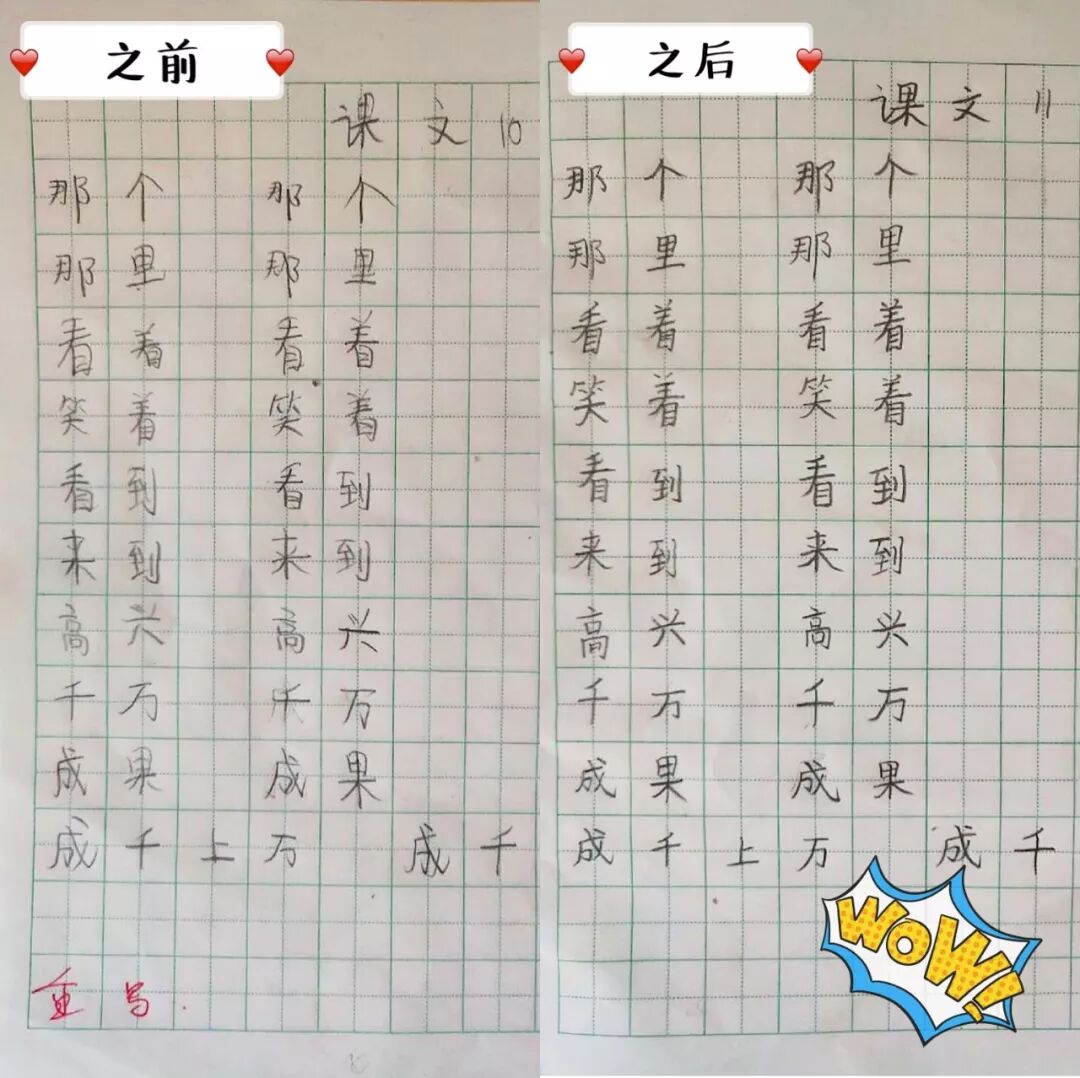 之前
课文10
那个 那个
那里 那里
看着 看着
笑着 笑着
看到 看到
来到 来到
高兴 高兴
千万 千万
成果 成果
成千上万 成千
重写.
之后
课文11
那个 那个
那里 那里
看着 看着
笑着 笑着
看到 看到
来到 来到
高兴 高兴
千万 千万
成果 成果
成千上万 成千
WOW!